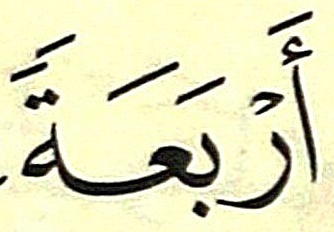 أَرْبَعَةً